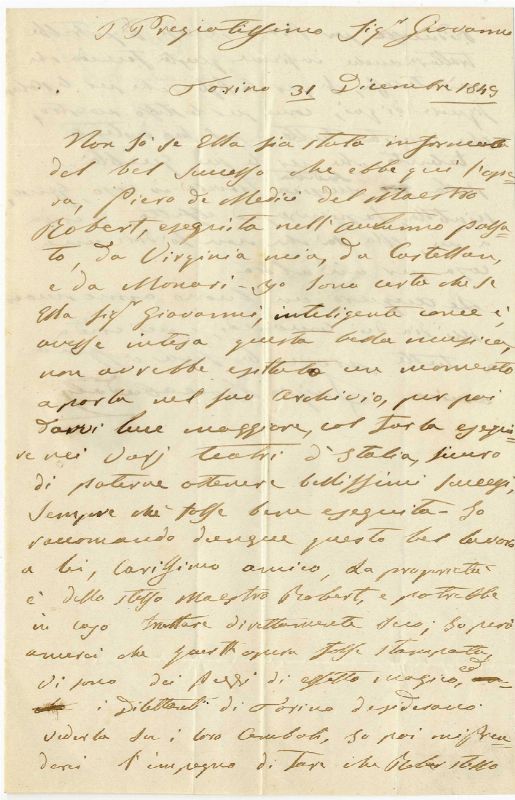 Pregiatissimo Sigr Giovanni
Torino 31 Dicembre 1849
Non so se Ella sia stata informata
del bel successo che ebbe qui l'ope-
ra, Piero de Medici del Maestro
Robert, eseguita nell'autunno passa-
to, da Virginia mia, da Castellan,
e da Monari - Io sono certo che se
Ella Sigr Giovanni, inteligente come è,
avesse intesa questa bella musica,
non avrebbe esittato un momento
a porla nel suo Archivio, per poi
darvi luce maggiore, col farla esegui-
re nei varj teatri d'Italia, sicuro
di poterne ottenere bellissimi successi,
sempre che fosse bene eseguita - Io
raccomando dunque questo bel lavoro
a lei, Carissimo amico, La proprietà
è dello stesso Maestro Robert, e potrebbe
in caso trattare direttamente seco; Io però
amerei che quest'opera fosse stampata,
vi sono dei pezzi di effetto magico, ed
i Dilettanti di Torino desiderano
vederla su i loro Cembali, Io poi mi pren-
derei l'impegno di fare che Robert stesso